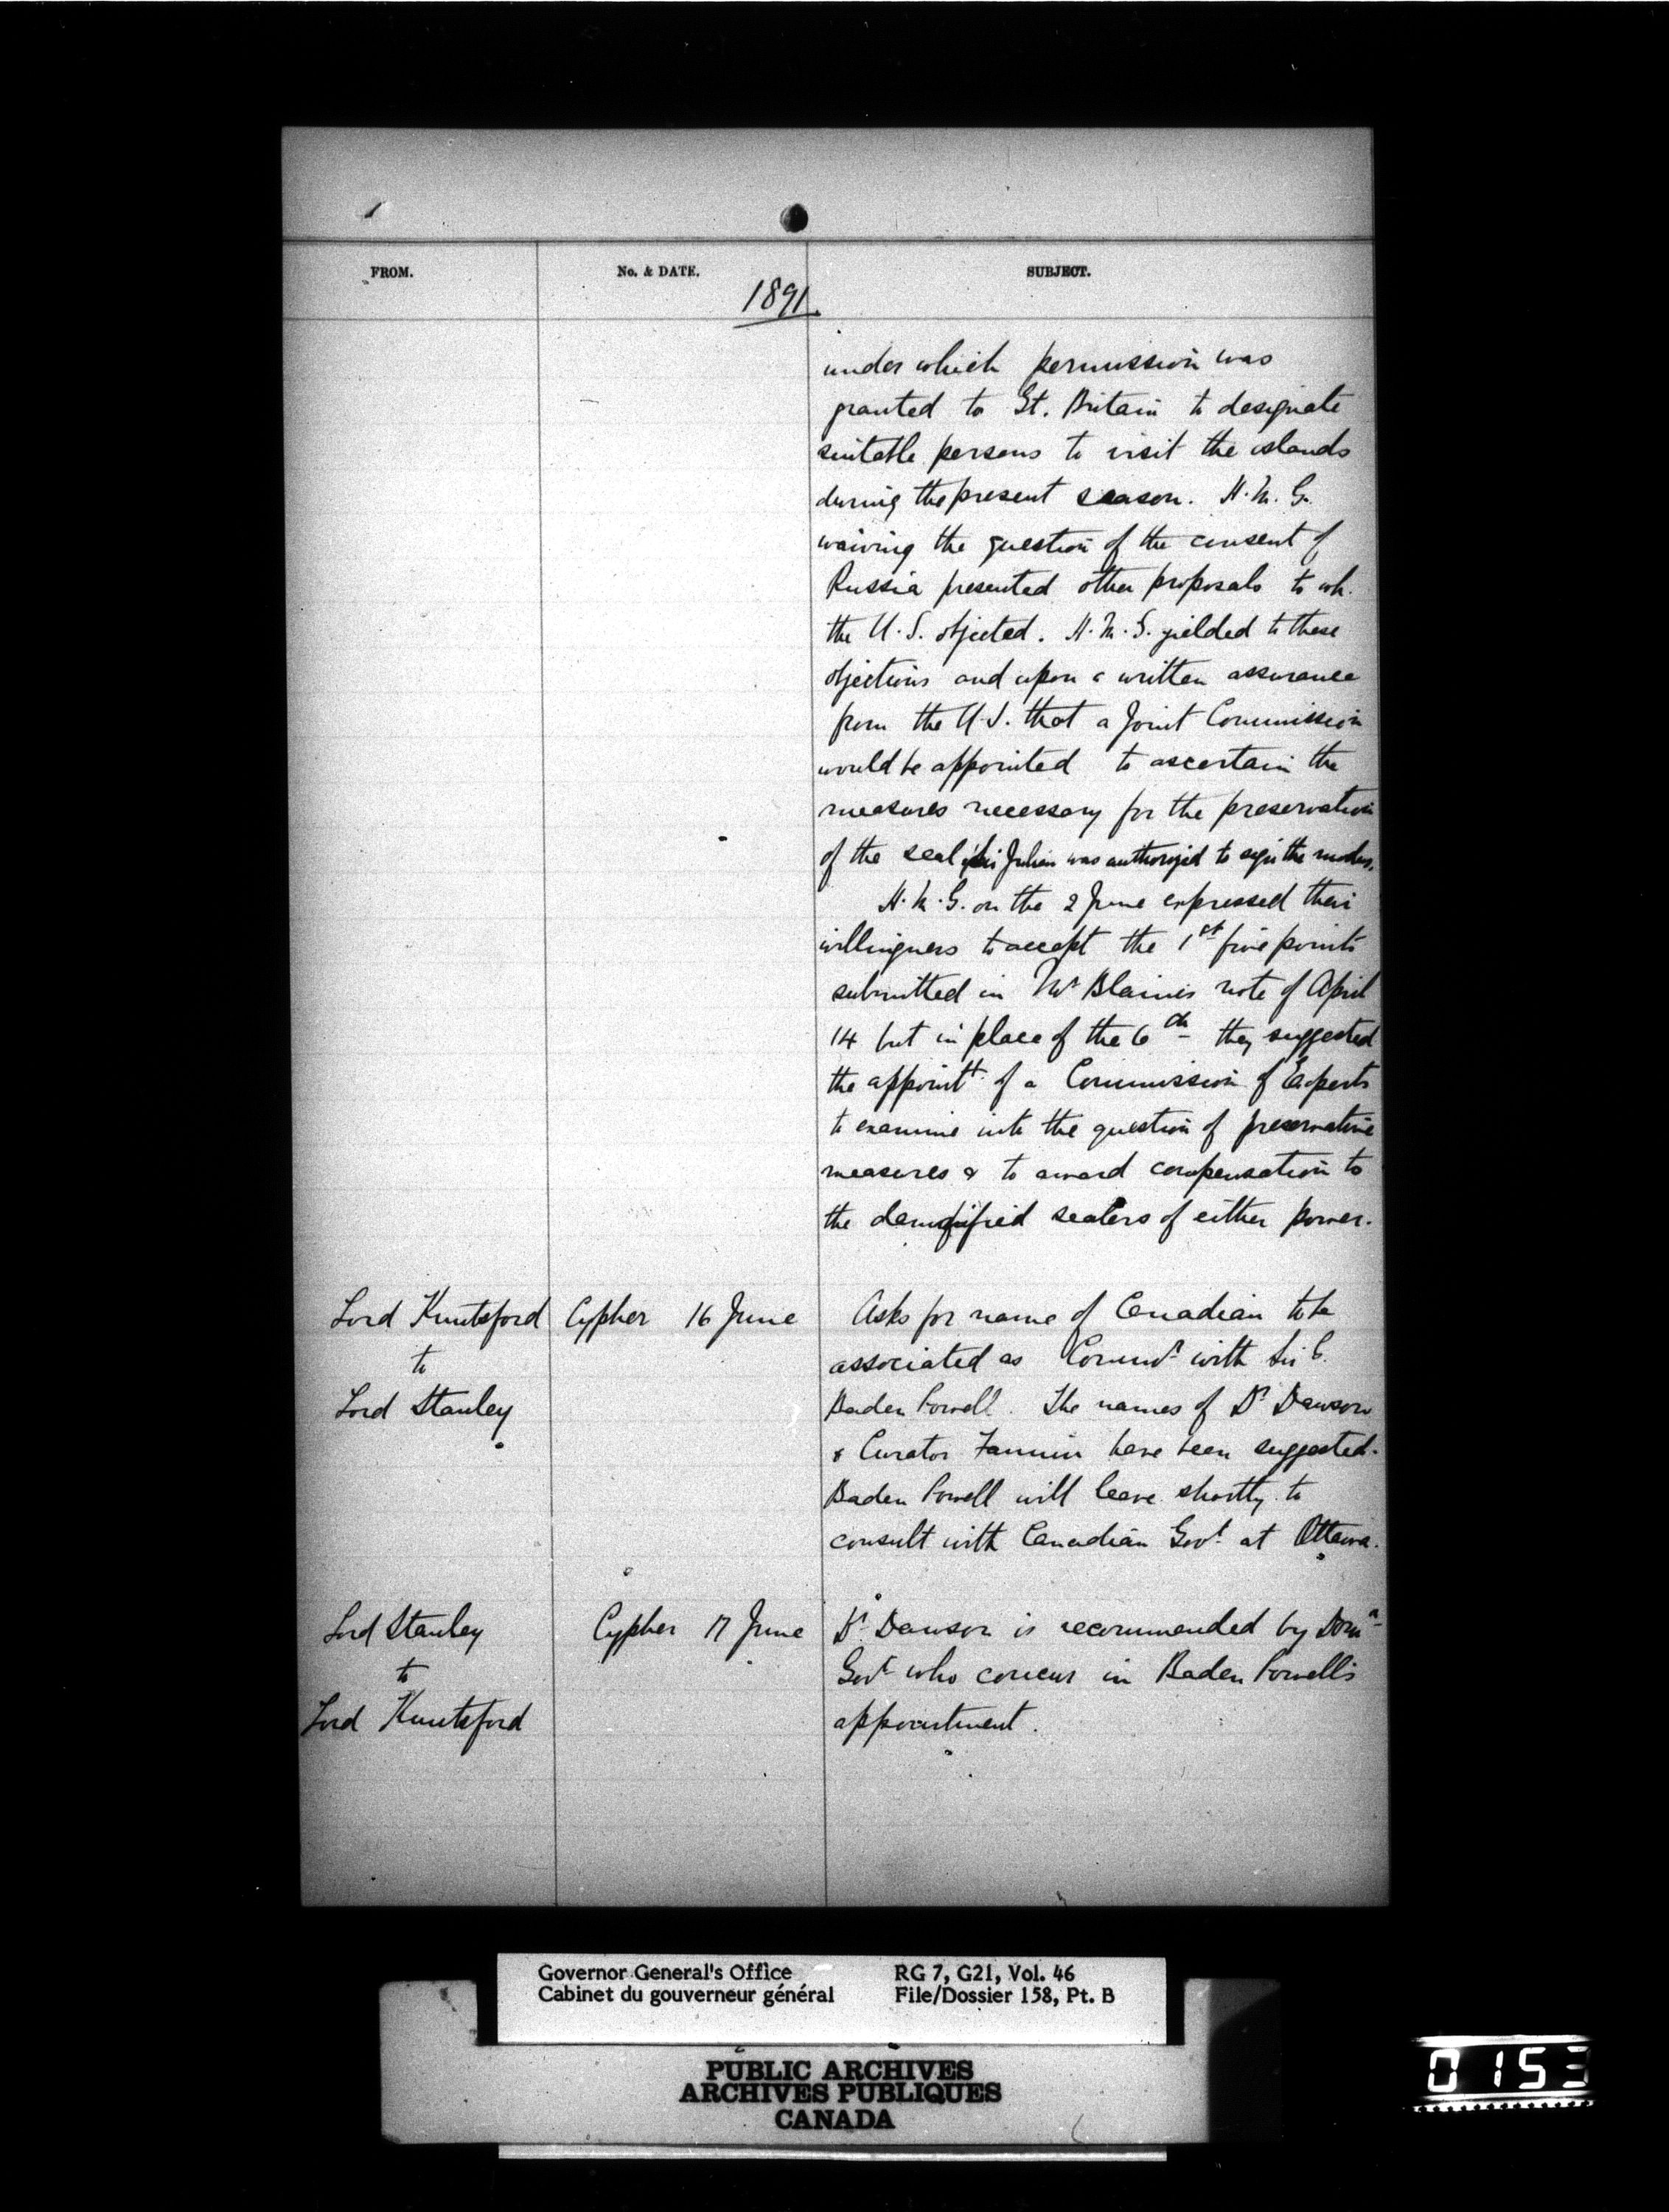 FROM. No. & DATE. SUBJECT.
1891.
under which permission was
granted to Gt. Britain to designate
suitable persons to visit the islands
during the present season. H.M.G.
waiving the question of the consent of
Russia presented other proposals to wh.
the U.S. objected. H.M.G. yielded to these
objections and upon a written assurance
from the U.S. that a Joint Commission
would be appointed to ascertain the
measures necessary for the preservation
of the seal Sir Julian was authorized to sign the modus.
H.M.G. on the 2 June expressed their
willingness to accept the 1st five points
submitted in Mr Blaine's note of April
14 but in place of the 6th they suggested
the appointt. of a Commission of Experts
to examine into the question of preservative
measures & to award compensation to
the damnified sealers of either power.
Lord Knutsford Cypher 16 June Asks for name of Canadian to be
to associated as Commr with Sir G.
Lord Stanley Baden Powell. The names of Dr Dawson
& Curator Fannin have been suggested.
Baden Powell will leave shortly to
consult with Canadian Govt at Ottawa.
Lord Stanley Cypher 17 June Dr Dawson is recommended by Domn
to Govt who concur in Baden Powell's
Lord Knutsford appointment.
Governor General's Office RG 7, G21, Vol. 46
Cabinet du gouverneur général File/Dossier 158, Pt. B
PUBLIC ARCHIVES
ARCHIVES PUBLIQUES
CANADA
0153